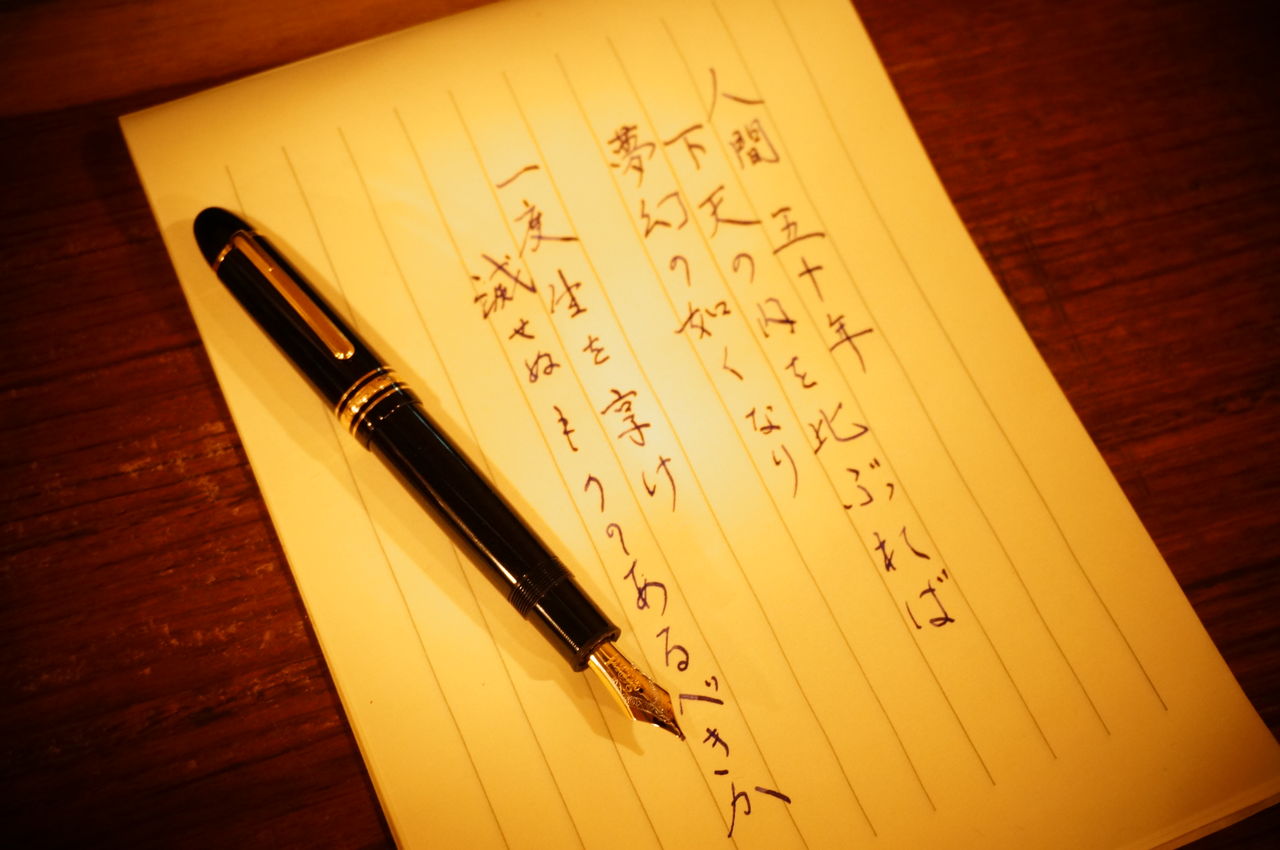 人間 五十年
下天の内を比ぶれば
夢幻の如くなり
一度生を享け
滅せぬもののあるべきか